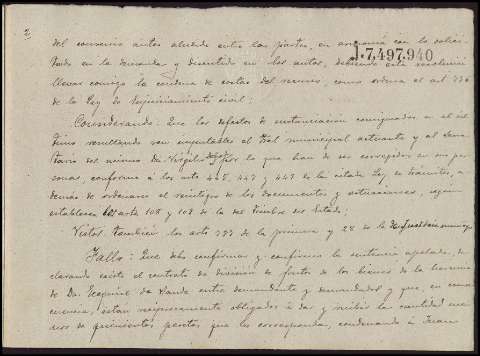 2
1.7,497.940
del convenio antes aludido entre las partes, en armonía con lo solici-
tado en la demanda y discutido en los autos, debiendo esta resolución
llevar consigo la condena de costas del recurso, como ordena el art 736
de la Ley de Enjuiciamiento civil;
Considerando: Que los defectos de sustanciación consignados en el úl-
timo resultando son imputables al Tbal municipal actuante y al Secre-
tario del mismo Dn Virgilio por lo que han de ser corregidos en sus per-
sonas, conforme á los arts 445, 447 y 449 de la citada Ley, en trámites, a-
demás de ordenarse el reintegro de los documentos y actuaciones, según
establecen los arts 108 y 109 de la del Timbre del Estado;
Vistos también los arts 733 de la primera y 28 de la de Justicia municipal
Fallo: Que debo confirmar y confirmo la sentencia apelada, de-
clarando existe el contrato de división de frutos de los bienes de la herencia
de Dn Ezequiel de entre demandante y demandados y que, en conse-
cuencia, están recíprocamente obligados á dar y recibir la cantidad me-
nos de quinientas pesetas que les corresponda, condenando á Juan